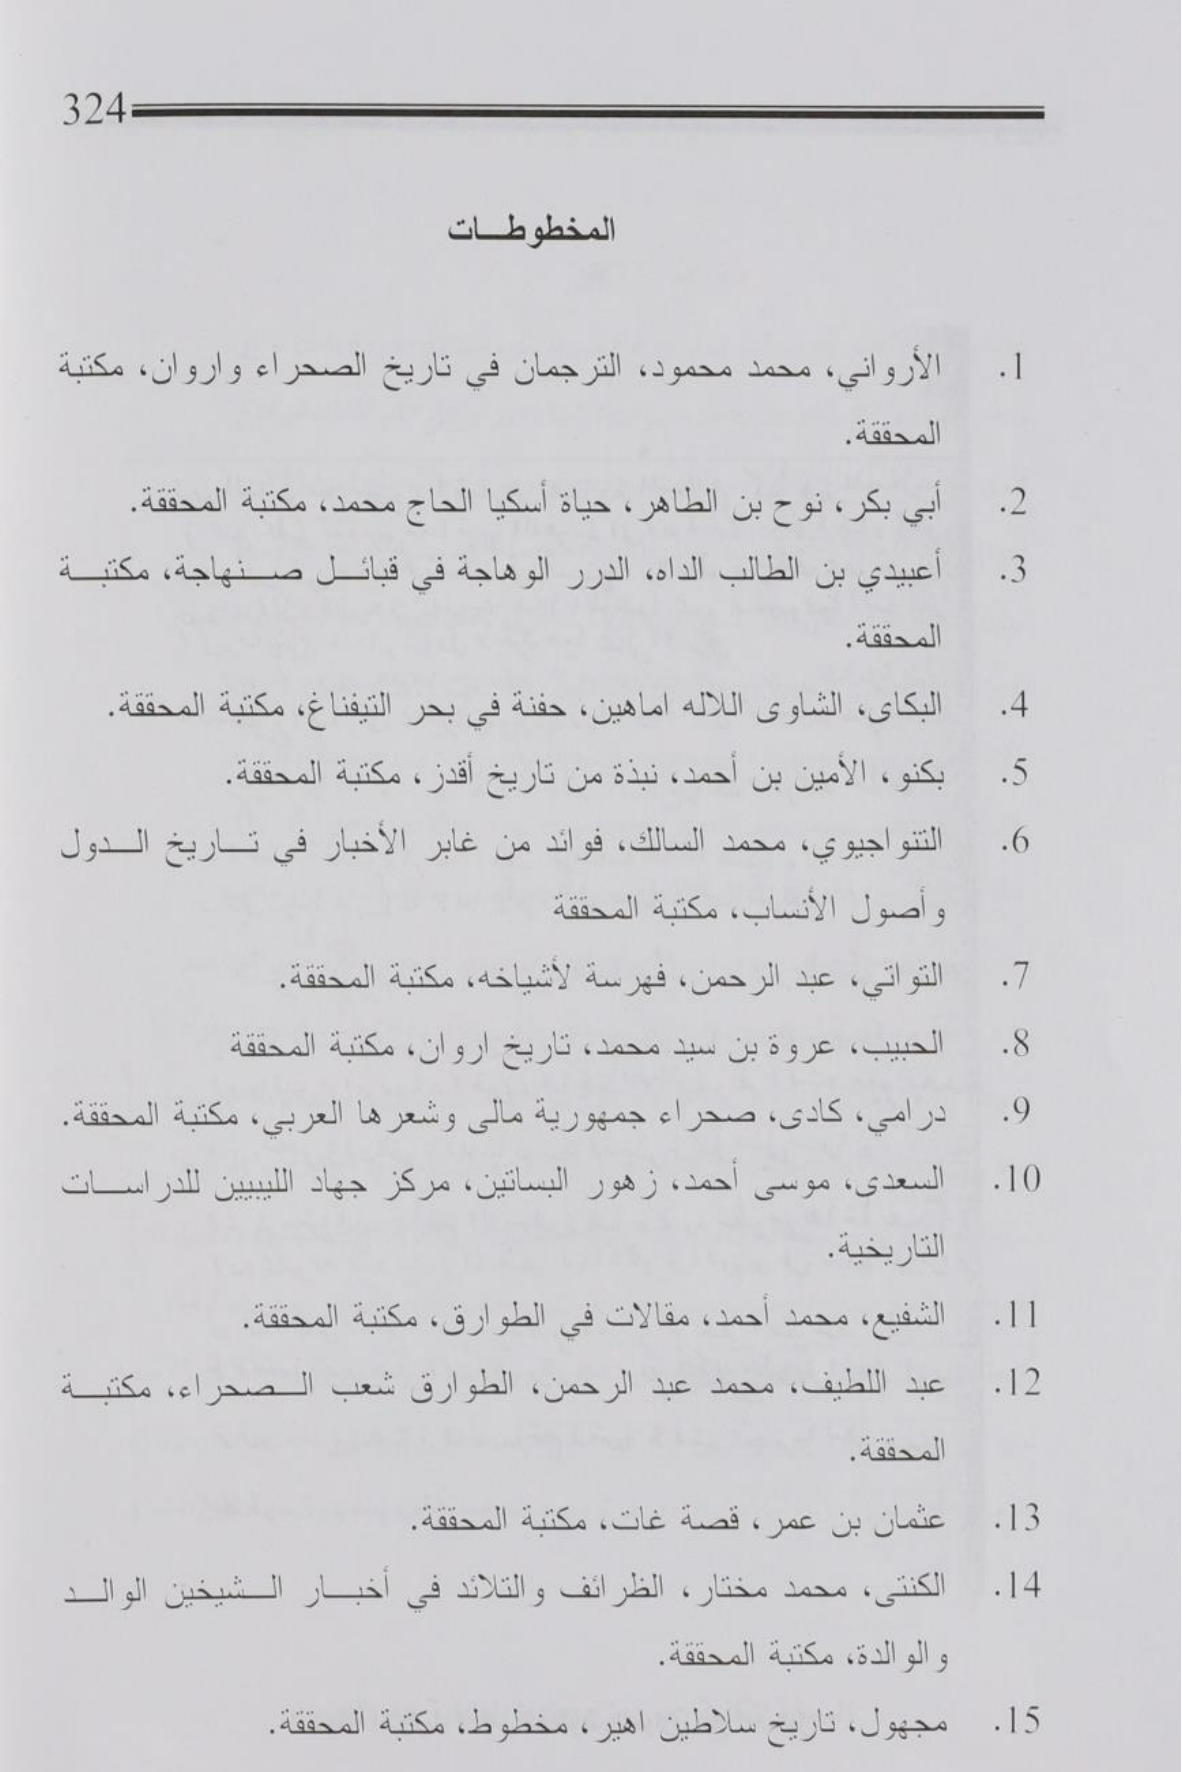 324
المخطوطات
1. الأرواني، محمد محمود، الترجمان في تاريخ الصحراء واروان، مكتبة
المحققة.
2. أبي بكر، نوح بن الطاهر، حياة أسكيا الحاج محمد، مكتبة المحققة.
3. أعبيدي بن الطالب الداه، الدرر الوهاجة في قبائل صنهاجة، مكتبة
المحققة.
4. البكاى، الشاوى اللاله اماهين، حفنة في بحر التيفناغ، مكتبة المحققة.
5. بكنو، الأمين بن أحمد، نبذة من تاريخ أقدز، مكتبة المحققة.
6. التنواجيوي، محمد السالك، فوائد من غابر الأخبار في تاريخ الدول
وأصول الأنساب، مكتبة المحققة
7. التواتي، عبد الرحمن، فهرسة لأشياخه، مكتبة المحققة.
8. الحبيب، عروة بن سيد محمد، تاريخ اروان، مكتبة المحققة
9. درامي، كادى، صحراء جمهورية مالى وشعرها العربي، مكتبة المحققة.
10. السعدى، موسى أحمد، زهور البساتين، مركز جهاد الليبيين للدراسات
التاريخية.
11. الشفيع، محمد أحمد، مقالات في الطوارق، مكتبة المحققة.
12. عبد اللطيف، محمد عبد الرحمن، الطوارق شعب الصحراء، مكتبة
المحققة.
13. عثمان بن عمر، قصة غات، مكتبة المحققة.
14. الكنتى، محمد مختار، الظرائف والتلائد في أخبار الشيخين الوالد
والوالدة، مكتبة المحققة.
15. مجهول، تاريخ سلاطين اهير، مخطوط، مكتبة المحققة.